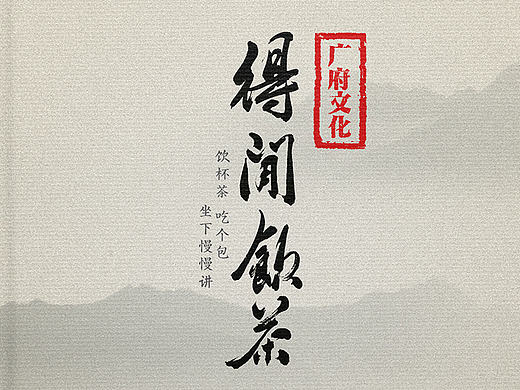 广府文化
得闲飲茶
饮杯茶 吃个包
坐下慢慢讲